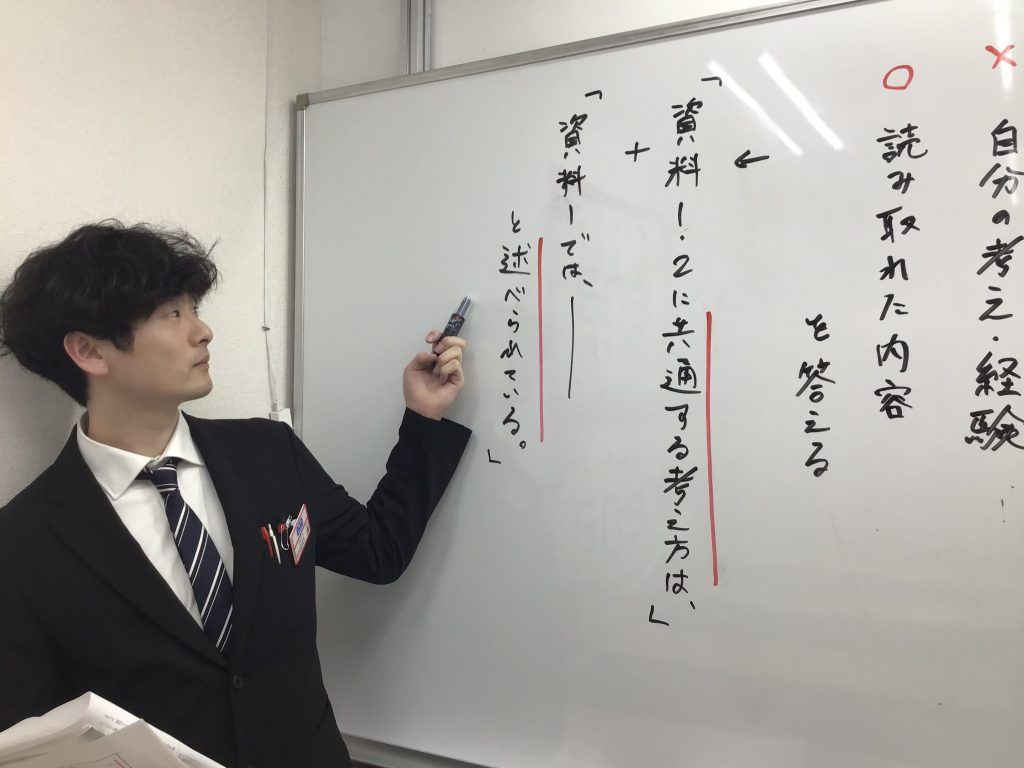 × 自分の考え・経験
○ 読み取れた内容
を答える
←
「資料1・2に共通する考え方は、」
+
「資料1では、――
と述べられている。」